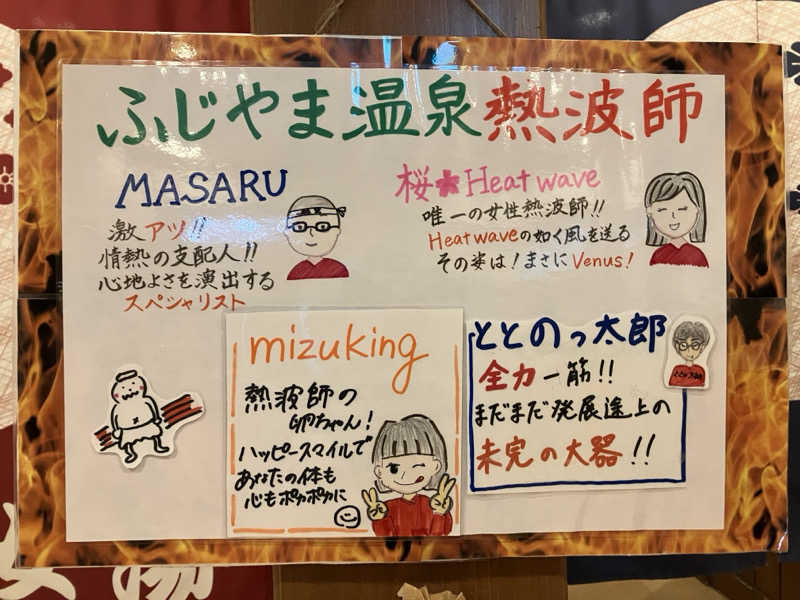 ふじやま温泉熱波師
MASARU
激アツ!!
情熱の支配人!!
心地よさを演出する
スペシャリスト
桜★Heat wave
唯一の女性熱波師!!
Heat waveの如く風を送る
その姿は!まさにVenus!
mizuking
熱波師の
卵ちゃん!
ハッピースマイルで
あなたの体も
心もポカポカに
ととのっ太郎
全力一筋!!
まだまだ発展途上の
未完の大器!!